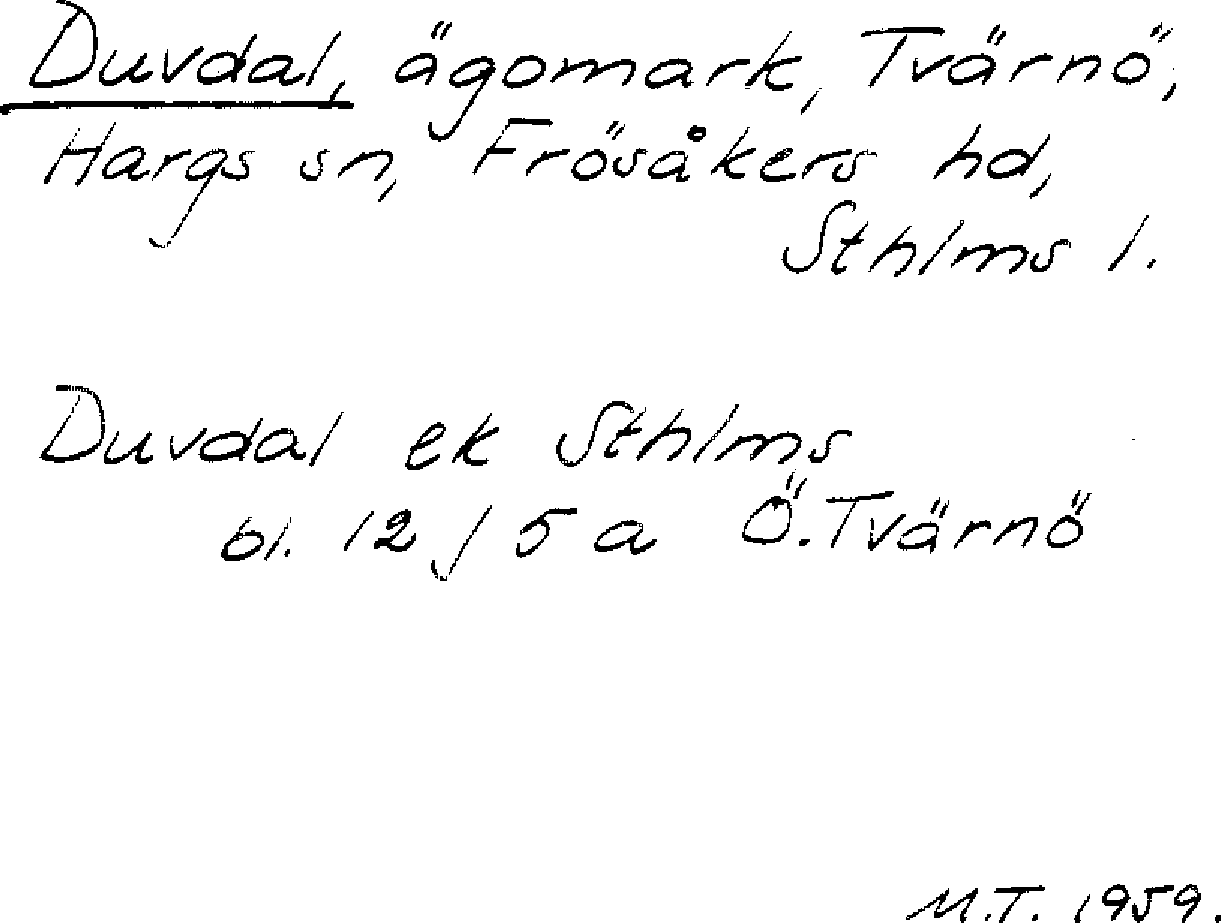 Duvdal, ägomark, Tvärnö,
Hargs sn, Frösåkers hd,
Sthlms l.
Duvdal ek Sthlms
bl. 12 j 5 a Ö.Tvärnö
M.T. 1959.